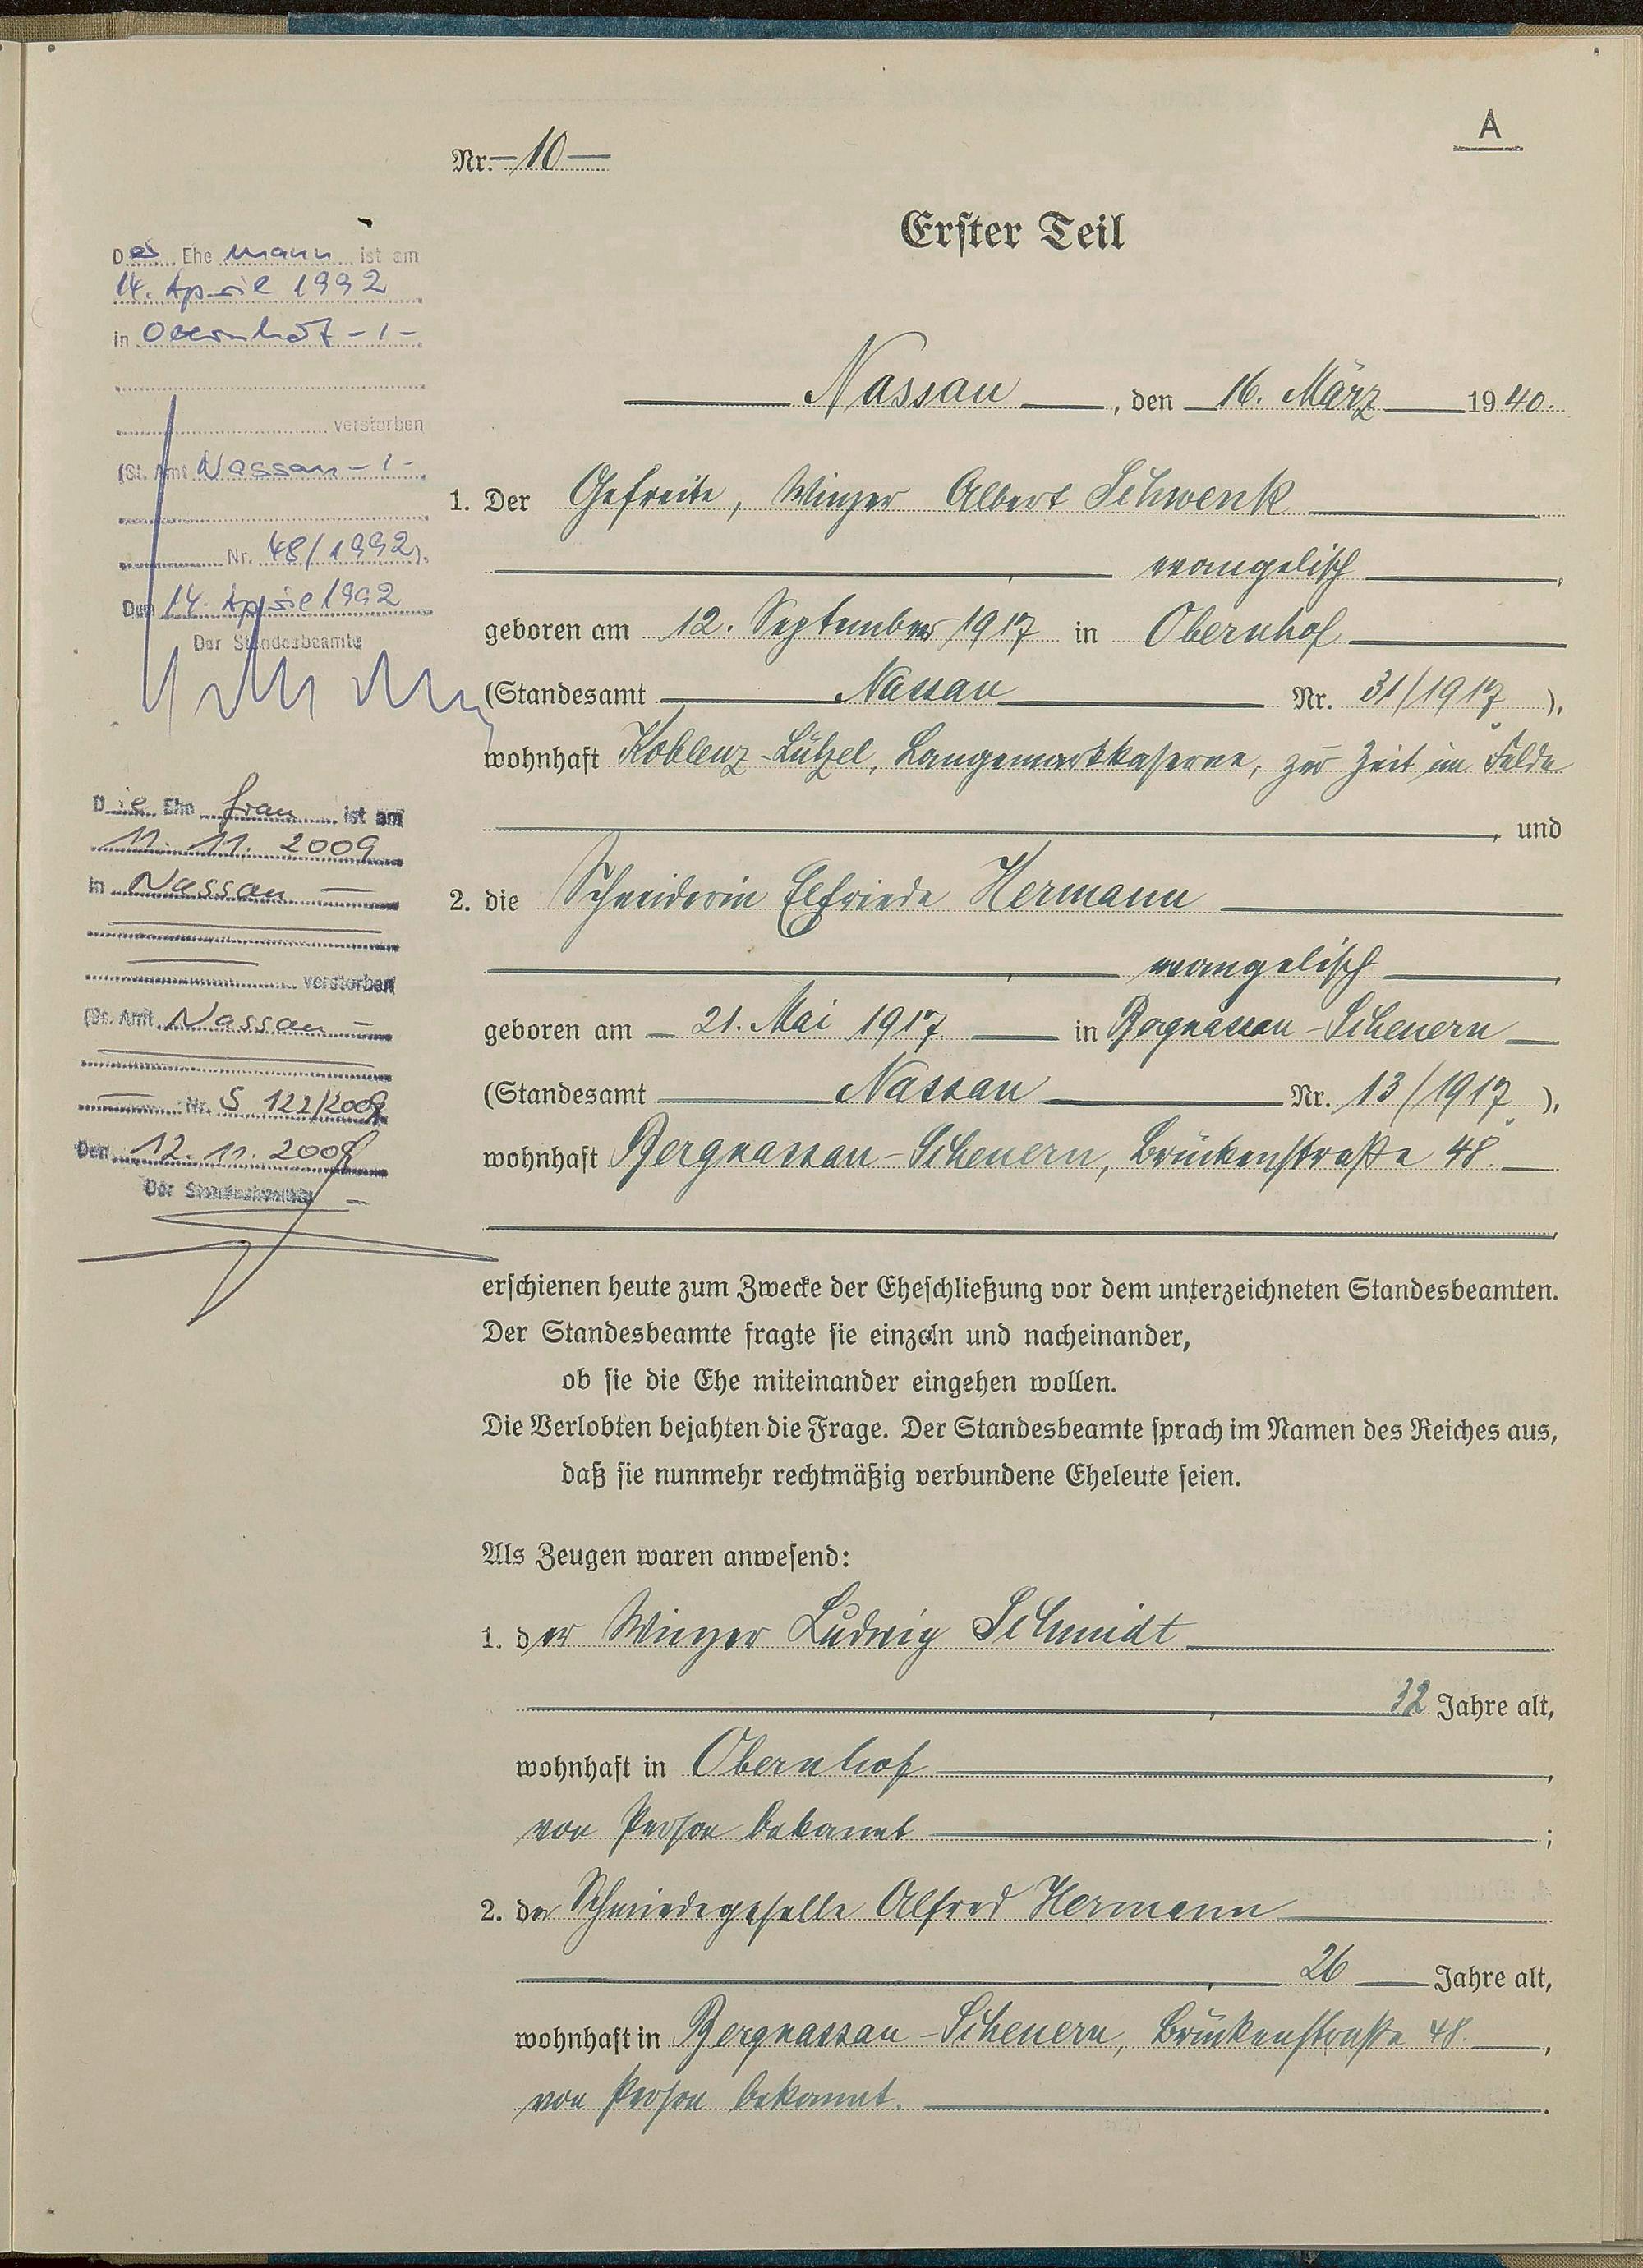 A
Nr. 10
Erster Teil
Nassau, den 16. März 1940.
1. Der Gefreite, Winzer Albert Schwenk
evangelisch,
geboren am 12. September 1917 in Obernhof
(Standesamt Nassau Nr. 31/1917),
wohnhaft Koblenz-Lützel, Langemarkkaserne, zur Zeit im Felde
, und
2. die Schneiderin Elfriede Hermann
evangelisch,
geboren am 21. Mai 1917. in Bergnassau-Scheuern
(Standesamt Nassau Nr. 13/1917),
wohnhaft Bergnassau-Scheuern, Brückenstraße 48.
,
erschienen heute zum Zwecke der Eheschließung vor dem unterzeichneten Standesbeamten.
Der Standesbeamte fragte sie einzeln und nacheinander,
ob sie die Ehe miteinander eingehen wollen.
Die Verlobten bejahten die Frage. Der Standesbeamte sprach im Namen des Reiches aus,
daß sie nunmehr rechtmäßig verbundene Eheleute seien.
Als Zeugen waren anwesend:
1. der Winzer Ludwig Schmidt
, 32 Jahre alt,
wohnhaft in Obernhof,
von Person bekannt;
2. der Schmiedegeselle Alfred Hermann
, 26 Jahre alt,
wohnhaft in Bergnassau-Scheuern, Brückenstraße 48.,
von Person bekannt.
Der Ehe mann ist am
14. April 1992
in Obernhof -/-
verstorben
(St. Amt Nassau -/-
Nr. 48/1992).
Den 14. April 1992
Der Standesbeamte
Die Ehe frau ist am
11. 11. 2009
in Nassau
verstorben
(St. Amt Nassau
Nr. S 122/2009
Den 12. 11. 2009
Der Standesbeamte